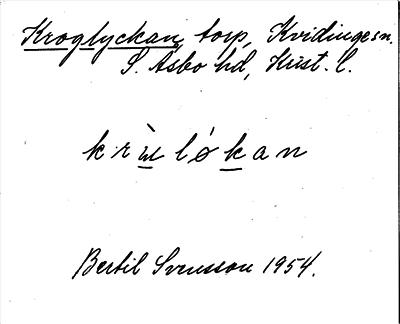 Kroglyckan, torp, Kvidinge sn.
S. Åsbo hd, Krist. l.
krùlókan
Bertil Svensson 1954.